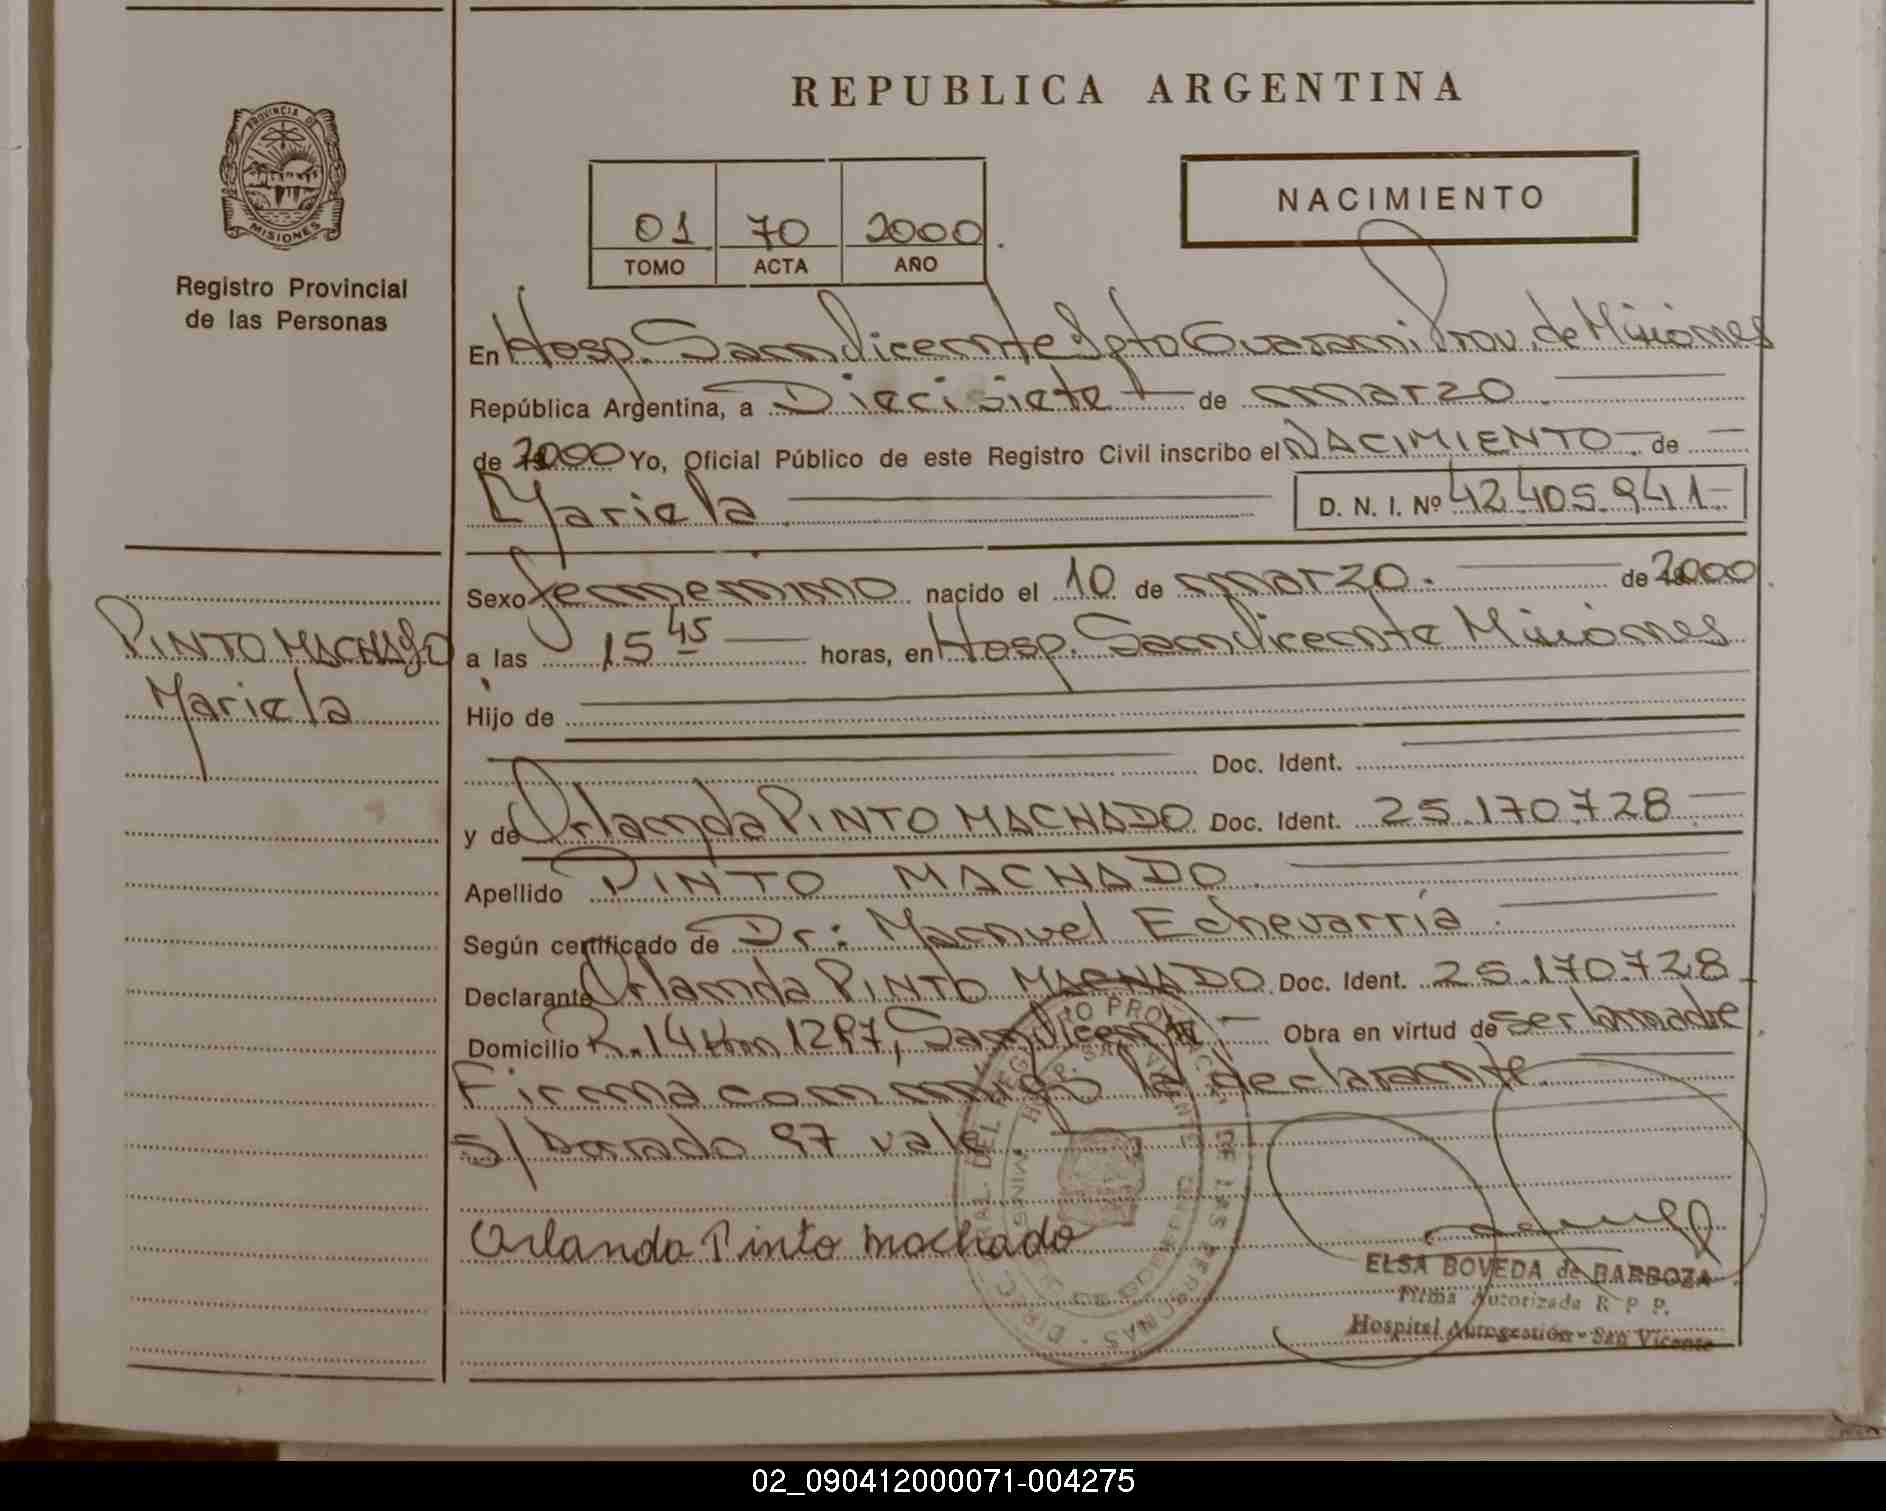 REPUBLICA ARGENTINA
PROVINCIA DE
MISIONES
Registro Provincial
de las Personas
NACIMIENTO
01 70 2000
TOMO ACTA AÑO
En Hosp. San Vicente Dpto Guaraní Prov. de Misiones
República Argentina, a Diecisiete de marzo
de 2000 Yo, Oficial Público de este Registro Civil inscribo el NACIMIENTO de
Mariela D. N. I. Nº 42.405.941
Sexo femenino nacido el 10 de marzo. de 2000
PINTO MACHADO
Mariela
a las 15 45 horas, en Hosp. San Vicente Misiones
Hijo de
Doc. Ident.
y de Orlanda PINTO MACHADO Doc. Ident. 25.170.728
Apellido PINTO MACHADO
Según certificado de Dr: Manuel Echevarría
Declarante Orlanda PINTO MACHADO Doc. Ident. 25.170.728
Domicilio R. 14 Km 1297, San Vicente Obra en virtud de ser la madre
Firma conmigo la declarante.
s/ borrado 97 vale
Orlanda Pinto machado
ELSA BOVEDA de BARBOZA
Firma Autorizada R P P.
Hospital Autogestión - San Vicente
02_090412000071-004275